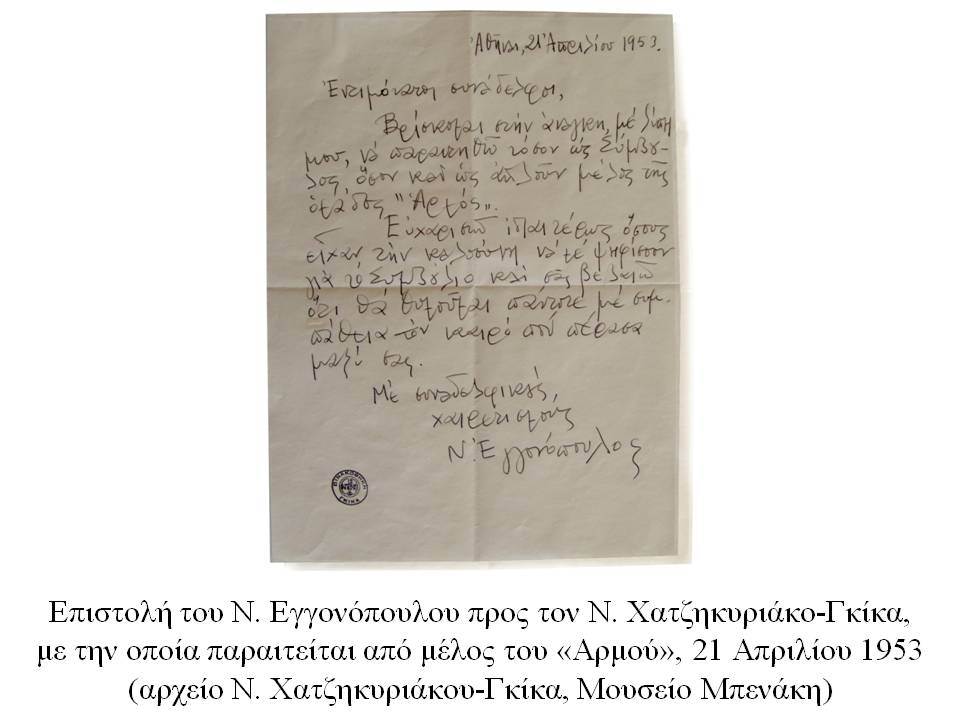 Ἀθῆναι, 21 Ἀπριλίου 1953.
Ἐντιμότατοι συνάδελφοι,
Βρίσκομαι στὴν ἀνάγκη, μὲ λύπη
μου, νὰ παραιτηθῶ τόσον ὡς Σύμβου-
λος, ὅσον καὶ ὡς ἁπλοῦν μέλος τῆς
ὁμάδος "Ἁρμός".
Εὐχαριστῶ ἰδιαιτέρως ὅσους
εἶχαν τὴν καλωσύνη νὰ μὲ ψηφίσουν
γιὰ τὸ Συμβούλιο καὶ σᾶς βεβαιῶ
ὅτι θὰ θυμοῦμαι πάντοτε μὲ συμ-
πάθεια τὸν καιρὸ ποὺ πέρασα
μαζύ σας.
Μὲ συναδελφικούς,
χαιρετισμούς
Ν. Ἐγγονόπουλος
ΠΙΝΑΚΟΘΗΚΗ
ΓΚΙΚΑ
Επιστολή του Ν. Εγγονόπουλου προς τον Ν. Χατζηκυριάκο-Γκίκα,
με την οποία παραιτείται από μέλος του «Αρμού», 21 Απριλίου 1953
(αρχείο Ν. Χατζηκυριάκου-Γκίκα, Μουσείο Μπενάκη)